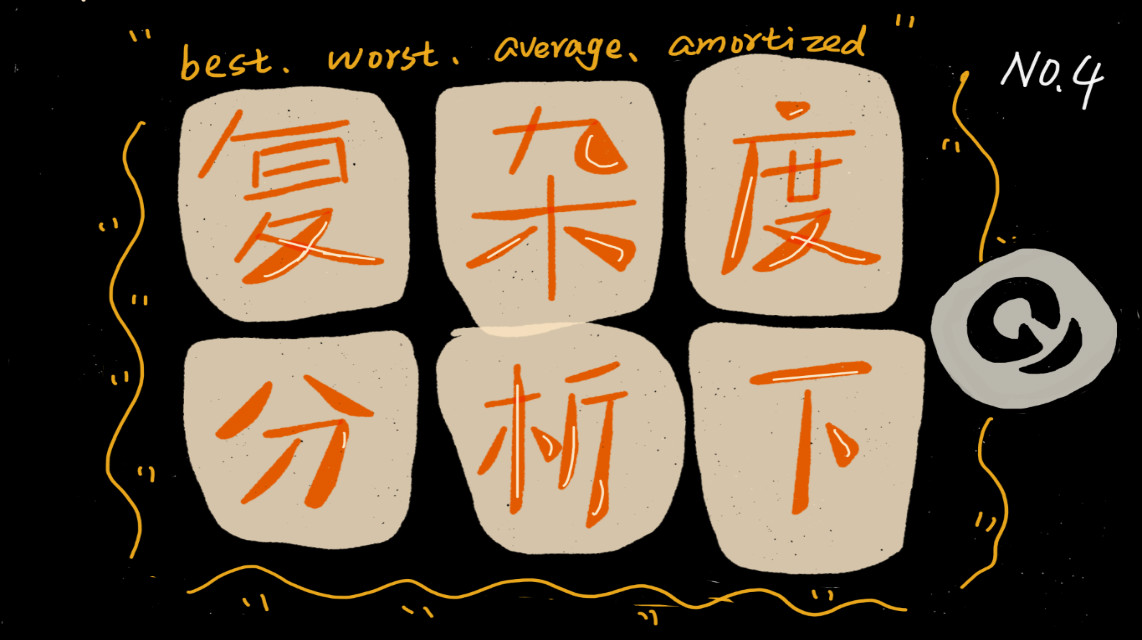 " best. worst. average、amortized "
No.4
复杂度
分析下